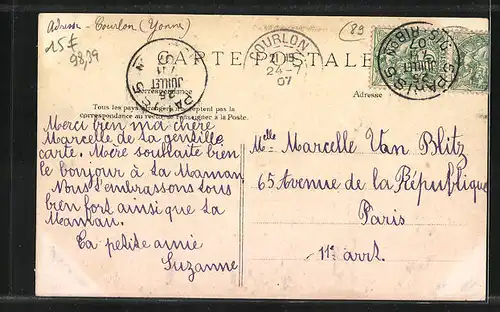 Adresse - Courlon (Yonne)
15€
98,09
(89)
CARTE POSTALE
COURLON
24-7
07
PARIS
25
JUILLET
Correspondance
Adresse
Tous les pays étrangers n'acceptent pas la
correspondance au recto, se renseigner à la Poste.
Merci bien ma chère
Marcelle de ta gentille
carte. Mère souhaite bien
le bonjour à ta Maman.
Nous t'embrassons tous
bien fort ainsi que ta
Maman.
Ta petite amie
Suzanne
Melle Marcelle Van Blitz
65 Avenue de la République
Paris
11e arrt.